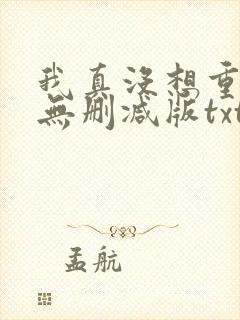 我真没想重
無删减版txt
孟航